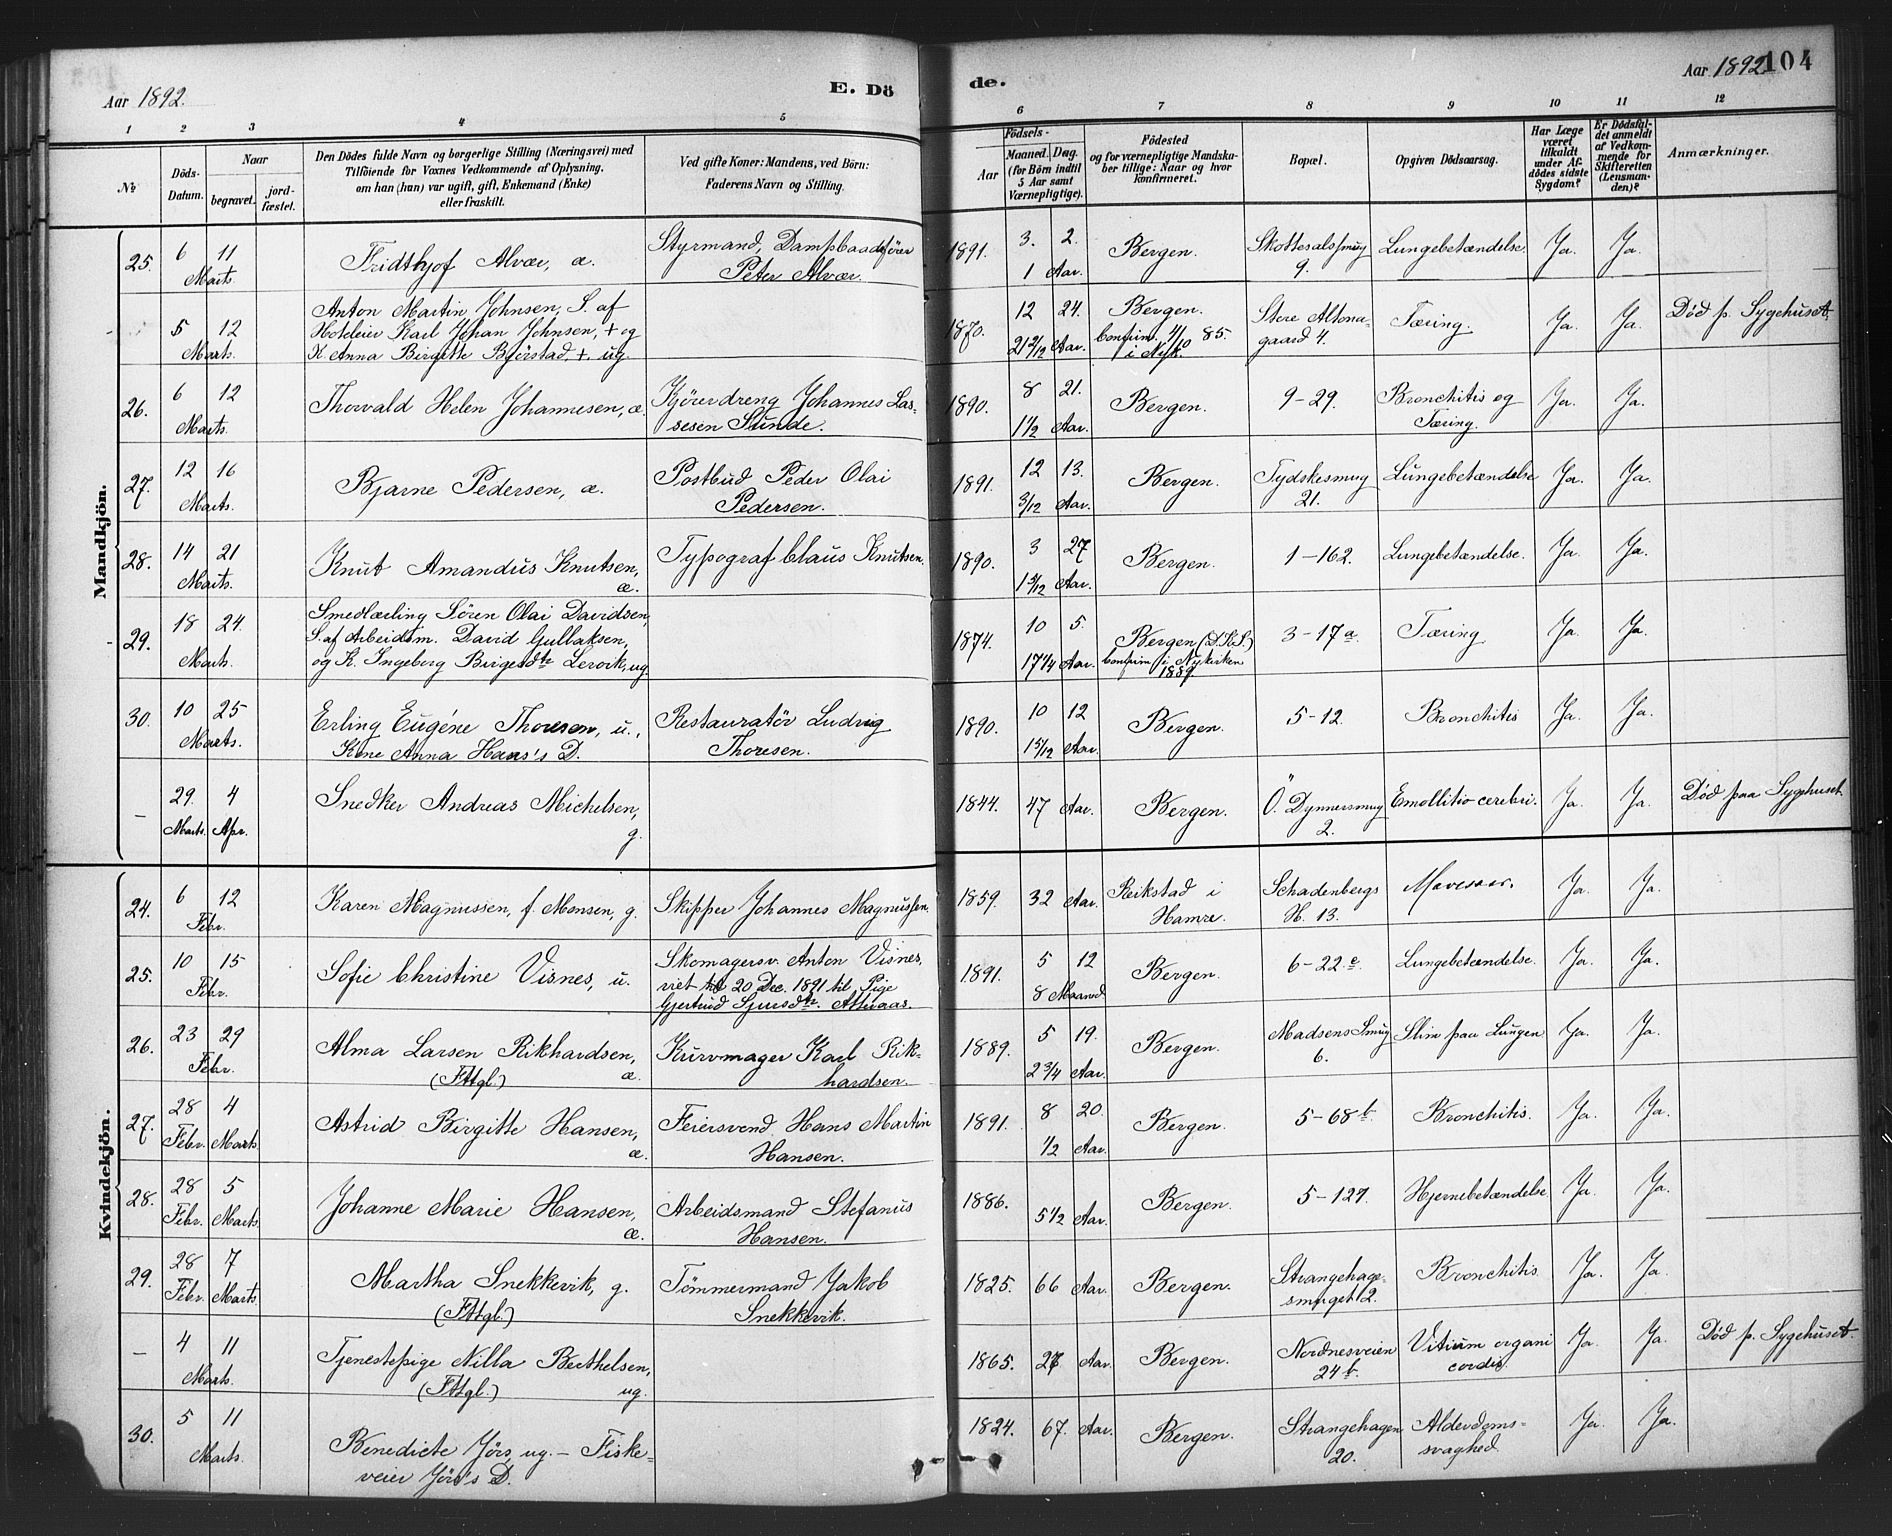 Aar 1892.
E. Dö
de.
Aar 1892 104
1 2 3 4 5 6 7 8 9 10 11 12
No
Döds-
Datum.
Naar
begravet.
jord-
fæstet.
Den Dödes fulde Navn og borgerlige Stilling (Næringsvei) med
Tilföiende for Voxnes Vedkommende af Oplysning,
om han (hun) var ugift, gift, Enkemand (Enke)
eller fraskilt.
Ved gifte Koner: Mandens, ved Börn:
Faderens Navn og Stilling.
Födsels-
Aar
Maaned. Dag.
(for Börn indtil
5 Aar samt
Værnepligtige).
Födested
og for værnepligtige Mandska-
ber tillige: Naar og hvor
konfirmeret.
Bopæl.
Opgiven Dödsaarsag.
Har Læge
været
tilkaldt
under Af-
dödes sidste
Sygdom?
Er Dödsfal-
det anmeldt
af Vedkom-
mende for
Skifteretten
(Lensman-
den)?
Anmærkninger.
Mandkjön.
25. 6 11 Marts.
Fridthjof Alvær, æ.
Styrmand, Dampbaadsförer
Peter Alvær.
1891. 3. 2.
1 Aar.
Bergen.
Skottesalssmug
9.
Lungebetændelse Ja. Ja.
5 12 Marts.
Anton Martin Johnsen, S. af
Hoteleier Karl Johan Johnsen, + og
K. Anna Birgitte Bjørstad, +, ug.
1870. 12 24.
21 2/12 Aar.
Bergen.
Confirm. 4/10 85.
i Nyk.
Store Altona-
gaard 4.
Tæring. Ja. Ja. Död p. Sygehuset.
26. 6 12 Marts.
Thorvald Helen Johannesen, æ.
Kjöredreng Johannes Las-
sesen Sunde.
1890. 8 21.
1 1/2 Aar.
Bergen.
9-29.
Bronchitis og
Tæring.
Ja. Ja.
27. 12 16 Marts.
Bjarne Pedersen, æ.
Postbud Peder Olai
Pedersen.
1891. 12 13.
3/12 Aar.
Bergen.
Tydskesmug
21.
Lungebetændelse Ja. Ja.
28. 14 21 Marts.
Knut Amandus Knutsen,
æ.
Typograf Claus Knutsen.
1890. 3 27
Aar.
Bergen.
1-162. Lungebetændelse. Ja. Ja.
29. 18 24. Marts.
Smedlærling Sören Olai Davidsen,
S. af Arbeidsm. David Gullaksen,
og K. Ingeborg Birgersdtr Lervik, ug.
1874. 10 5.
17 1/4 Aar.
Bergen (D.K.S.)
Confirm. i Nykirken
1889.
3-17a. Tæring. Ja. Ja.
30. 10 25 Marts.
Erling Eugéne Thoresen, u.,
Kone Anna Haas's D.
Restauratör Ludvig
Thoresen.
1890. 10 12
1 5/12 Aar.
Bergen.
5-12. Bronchitis Ja. Ja.
– 29. 4
Marts. Apr.
Snedker Andreas Michelsen,
g.
1844. 47 Aar. Bergen.
Ö. Dynnersmug
2.
Emollitio cerebri. Ja. Ja. Död paa Sygehuset.
Kvindekjön.
24. 6 12 Febr.
Karen Magnussen, f. Monsen, g.
Skipper Johannes Magnussen.
1859. 32 Aar.
Rikstad i
Hamre.
Schadenbergs
H. 13.
Mavesaar. Ja. Ja.
25. 10 15 Febr.
Sofie Christine Visnes, u.
Skomagersv. Anton Visnes,
viet 20 Dec. 1891 til Pige
Gjertrud Sjursdtr.
1891. 5 12
8 Maaned
Bergen.
6-22e. Lungebetændelse. Ja. Ja.
26. 23 29 Febr.
Alma Larsen Rikhardsen,
(Fttgl.) æ.
Kurvmager Karl Rik-
hardsen.
1889. 5 19.
2 3/4 Aar.
Bergen.
Madsens Smug
6.
Slim paa Lungen Ja. Ja.
27. 28 4
Febr. Marts.
Astrid Birgitte Hansen,
æ.
Feiersvend Hans Martin
Hansen.
1891. 8 20.
1/2 Aar.
Bergen.
5-68b. Bronchitis. Ja. Ja.
28. 28 5
Febr. Marts.
Johanne Marie Hansen,
æ.
Arbeidsmand Stefanus
Hansen.
1886.
5 1/2 Aar.
Bergen.
5-127. Hjernebetændelse Ja. Ja.
29. 28 7
Febr. Marts.
Martha Snekkevik, g.
(Fttgl.)
Tömmermand Jakob
Snekkevik.
1825. 66 Aar. Bergen.
Strangehage-
smuget 2.
Bronchitis. Ja. Ja.
– 4 11 Marts.
Tjenestepige Nilla Berthelsen,
(Fttgl.) ug.
1865. 27 Aar. Bergen.
Nordnesveien
24b.
Vitium organi
cordis.
Ja. Ja. Död p. Sygehuset.
30. 5 11 Marts.
Benedicte Jörs, ug. – Fiske-
veier Jörs's D.
1824. 67. Aar. Bergen.
Strangehagen
20.
Alderdoms-
svaghed.
Ja. Ja.